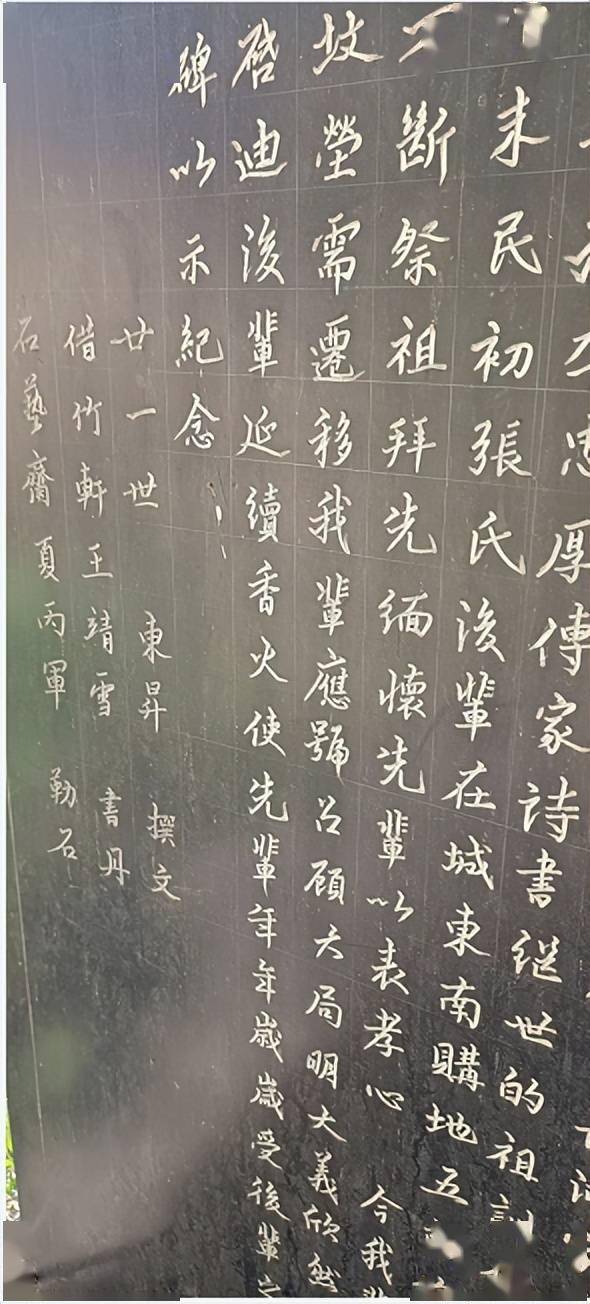 忠厚傳家詩書继世的祖訓
末民初張氏後輩在城東南購地五
斷祭祖拜先緬懷先輩以表孝心 今我
坟塋需遷移我輩應號召顾大局明大義欣然
啓迪後輩延續香火使先輩年年歲歲受後輩之
碑以示紀念
廿一世 東昇 撰文
借竹軒王靖雪 書丹
石藝齋夏丙軍 勒石